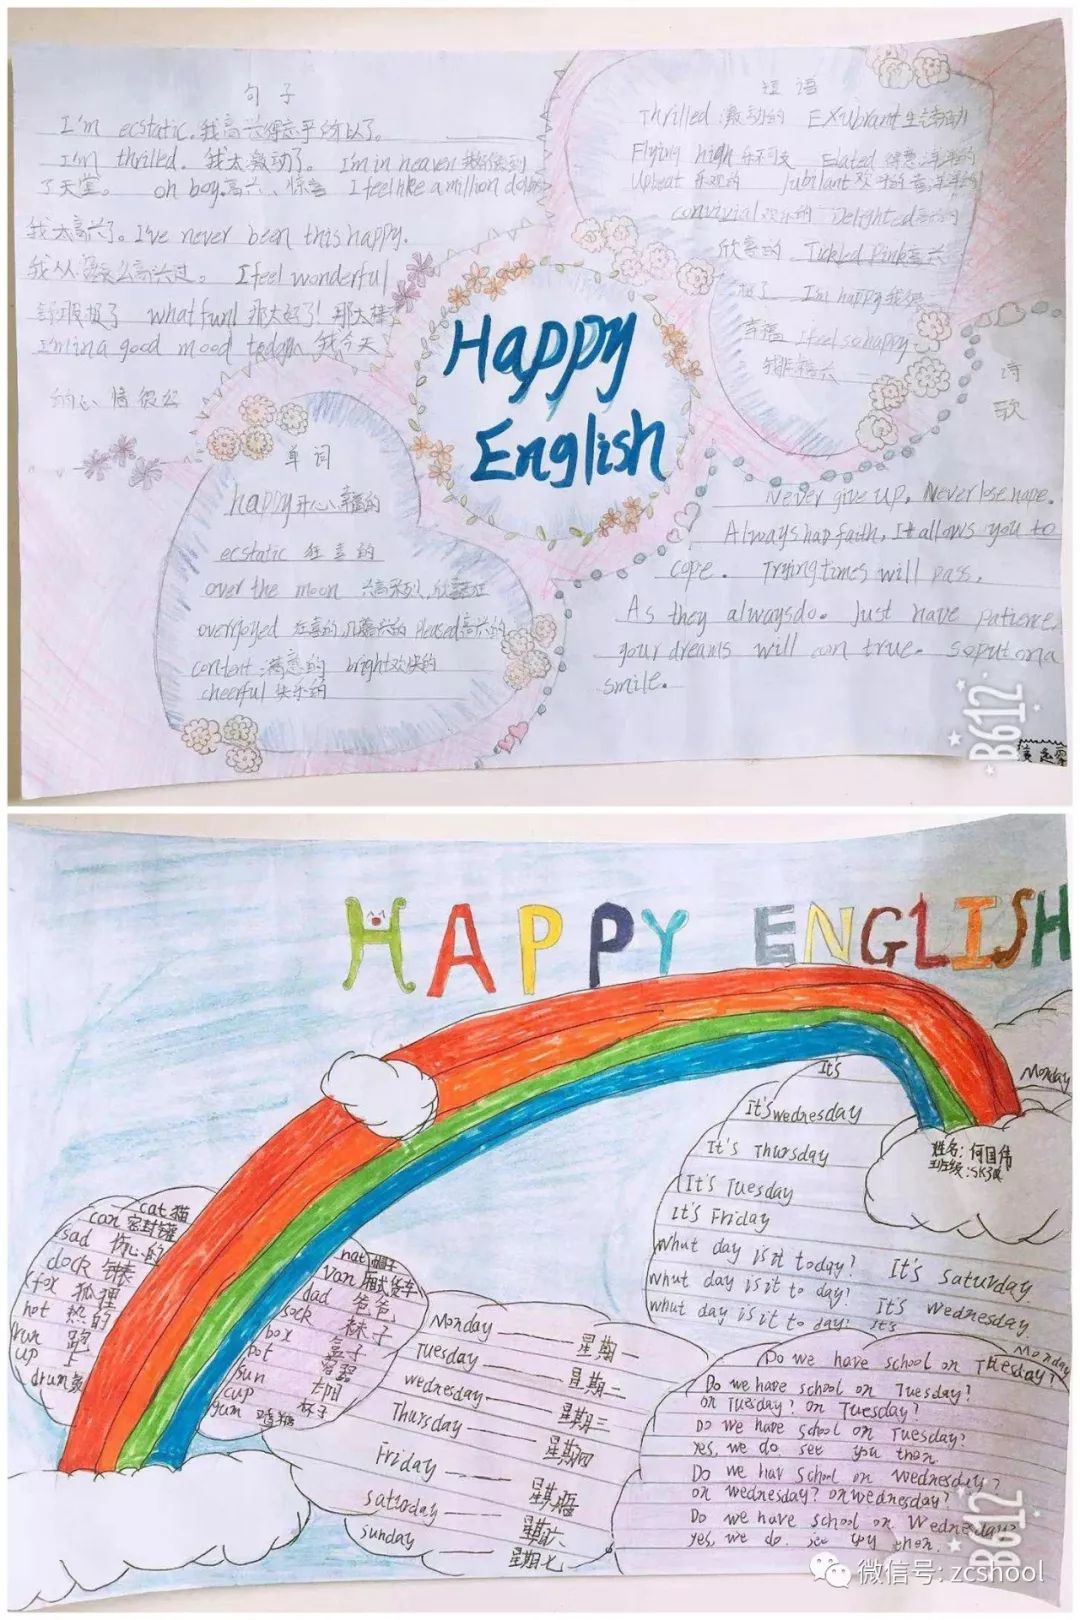 句子
I'm ecstatic. 我高兴得忘乎所以了。
I'm thrilled. 我太激动了。 I'm in heaven 我好像到
了天堂。 oh boy. 高兴、惊喜 I feel like a million dollars
我太高兴了。I've never been this happy.
我从没这么高兴过。 I feel wonderful
舒服极了 what fun! 那太好了! 那太棒
I'm in a good mood today. 我今天
的心情很好
短语
Thrilled 激动的 Exubrant 生活动
Flying high 乐不可支 Elated 得意
Upbeat 乐观的 Jubilant 欢乐的
convivial 欢乐的 Delighted 高兴的
欣喜的 Tickled Pink 高兴
极了 I'm happy 我很
幸福 I feel so happy
我非常高兴
诗歌
Happy
English
单词
happy 开心、幸福的
ecstatic 狂喜的
over the moon 兴高采烈、欣喜若狂
overjoyed 狂喜的 Pleased 高兴的
content 满意的 bright 欢快的
cheerful 快乐的
Never give up, Never lose hope.
Always hav faith, It allows you to
cope. Trying times will pass,
As they always do. Just have patience,
your dreams will com true. So put on a
smile.
B612
HAPPY ENGLISH
cat 猫
can 密封罐
sad 伤心的
clock 钟表
fox 狐狸
hot 热的
run 跑
up 上
drum 鼓
hat 帽子
van 厢式货车
dad 爸爸
sock 袜子
box 盒子
pot 容器
sun 太阳
cup 杯子
gum 口香糖
Monday 星期一
Tuesday 星期二
wednesday 星期三
Thursday 星期四
Friday 星期五
saturday 星期六
sunday 星期七
It's Monday
It's wednesday
It's Thursday
It's Tuesday
It's Friday
What day is it today? It's saturday.
what day is it to day? It's wednesday.
what day is it to day? It's
姓名:何国伟
班级:
Do we have school on Monday
Tuesday?
Do we have school on Tuesday?
on Tuesday? on Tuesday?
Do we have school on Tuesday?
yes, we do see you then.
Do we hav school on wednesday?
on wednesday? on wednesday?
Do we have school on Wednesday?
yes, we do. see you then.
B612
微信号: zcshool